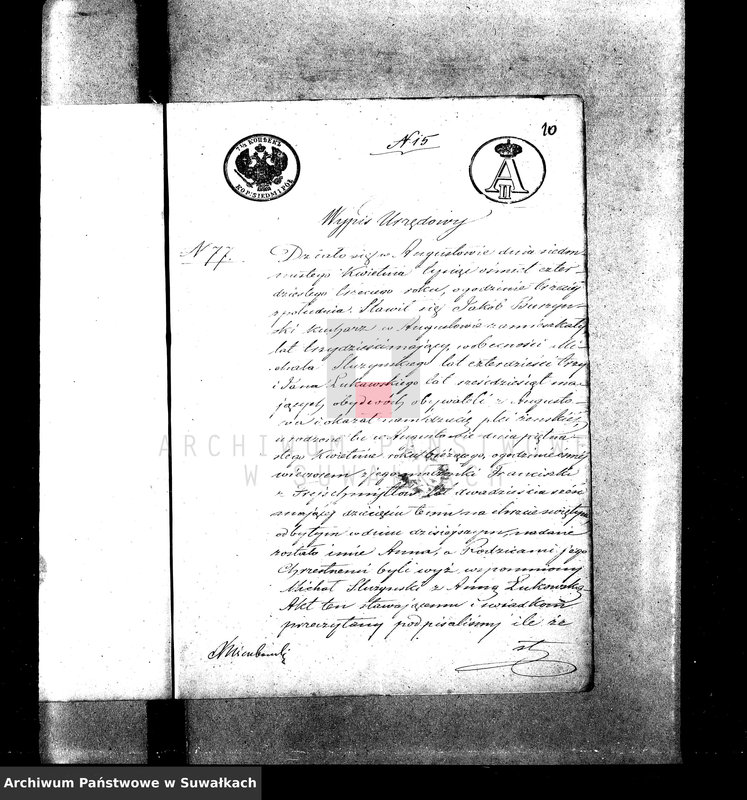 10
N 15
7½ КОПѢЕКЪ
KOP: SIEDM I PÓŁ
A II
Wypis Urzędowy
N 77.
Działo się w Augustowie dnia siedm-
nastego Kwietnia tysiąc ośmset czter-
dziestego trzeciego roku, o godzinie trzeciej
z południa. Stawił się Jakób Buszyń-
ski kucharz w Augustowie zamieszkały
lat trzydzieści mający, w obecności Mi-
chała Słuzynskiego lat czterdzieści trzy
i Jana Łukawskiego lat sześdziesiąt ma-
jących, obydwóch obywateli z Augusto-
wa i okazał nam dziecię płci żeńskiej,
urodzone tu w Augustowie dnia piętna-
stego Kwietnia roku bieżącego, o godzinie
wieczorem z jego małżonki Franciszki
z lat dwadzieścia sześć
mającej dziecięciu temu na chrzcie świętym
odbytym w dniu dzisiejszym, nadane
zostało imie Anna, a Rodzicami jego
Chrzestnemi byli wyż wspomniony
Michał Słuzynski z Anną Łukowską
Akt ten stawającemu i świadkom
przeczytany podpisaliśmy ile że
st
ARCHIWUM PAŃSTWOWE
W SUWAŁKACH
Archiwum Państwowe w Suwałkach